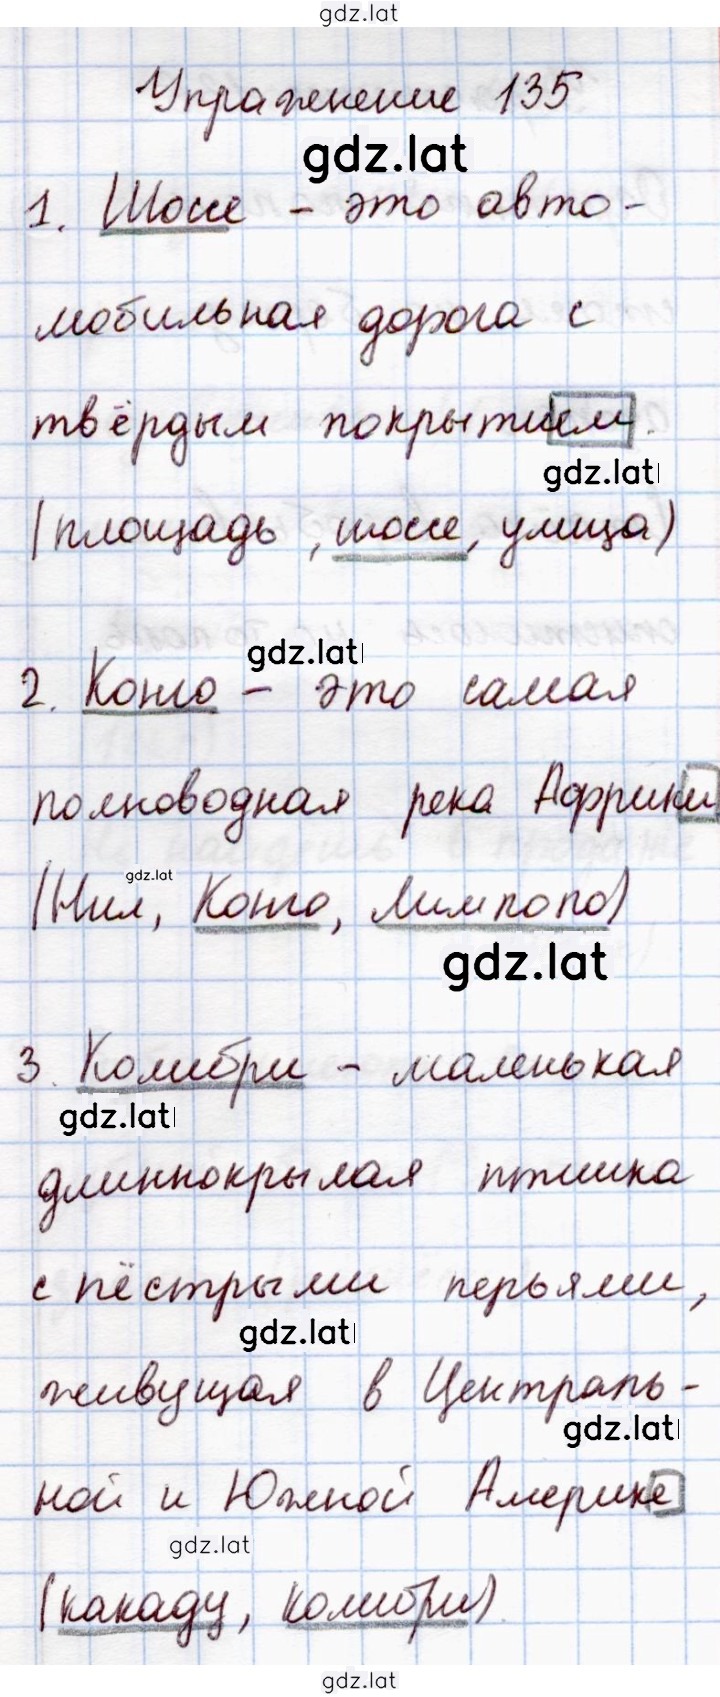 gdz.lat
Упражнение 135
gdz.lat
1. Шоссе – это авто-
мобильная дорога с
твёрдым покрытием.
gdz.lat
(площадь, шоссе, улица)
gdz.lat
2. Конго – это самая
полноводная река Африки
gdz.lat
(Нил, Конго, Лимпопо)
gdz.lat
3. Колибри – маленькая
gdz.lat
длиннокрылая птичка
с пёстрыми перьями,
gdz.lat
живущая в Централь-
gdz.lat
ной и Южной Америке
gdz.lat
(какаду, колибри).
gdz.lat